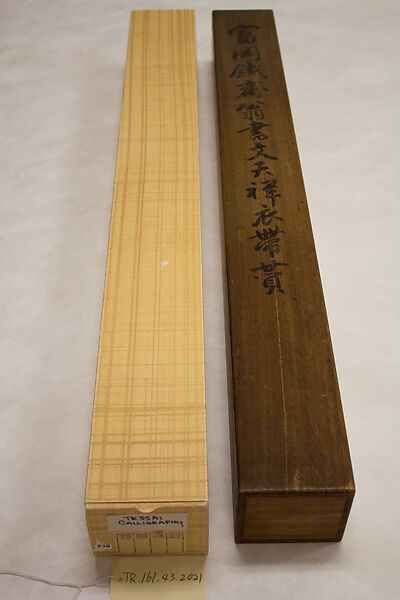 富岡鐵齋翁書文天祥衣帶賛
TESSAI
CALLIGRAPHY
338
TR.161.43.2021